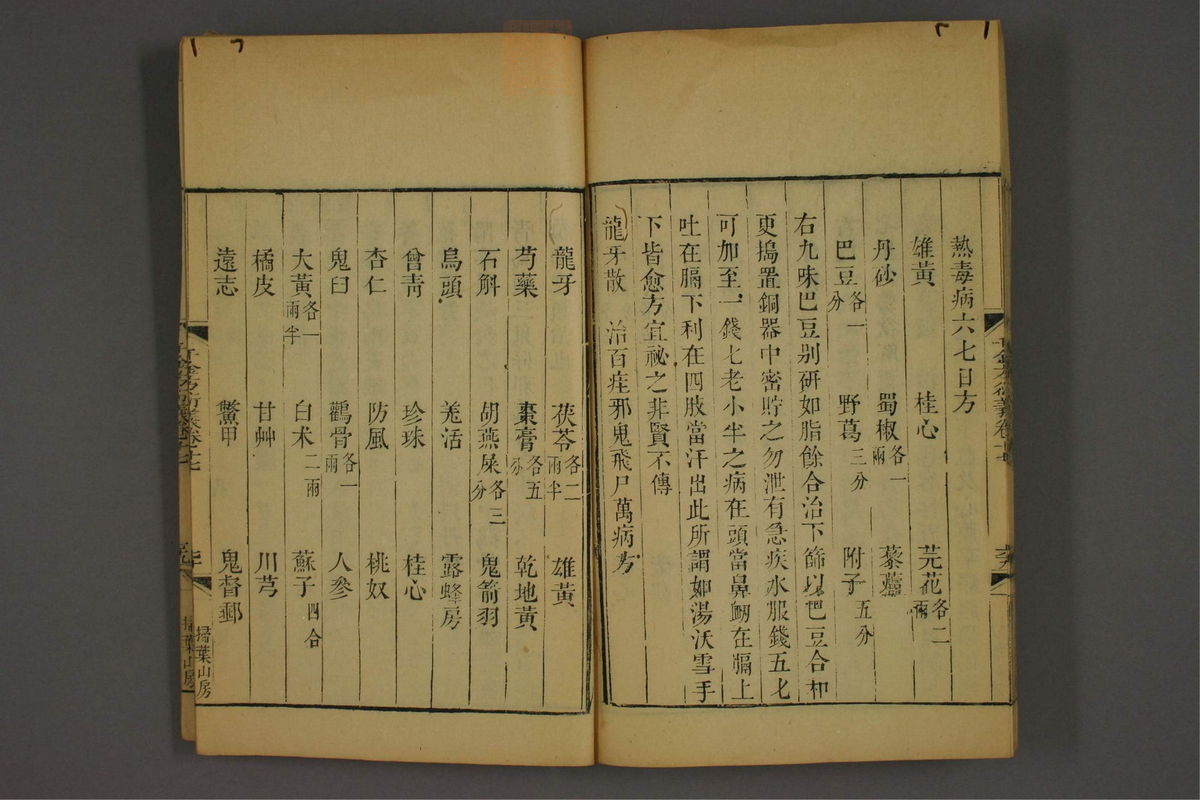 熱毒病六七日方
雄黃 桂心 芫花各二兩
丹砂 蜀椒各一兩 藜蘆
巴豆各一分 野葛三分 附子五分
右九味巴豆别研如脂餘合治下篩以巴豆合和
更搗置銅器中密貯之勿泄有急疾水服錢五匕
可加至一錢匕老小半之病在頭當鼻衂在膈上
吐在膈下利在四肢當汗出此所謂如湯沃雪手
下皆愈方宜祕之非賢不傳
龍牙散 治百疰邪鬼飛尸萬病方
龍牙 茯苓各二兩半 雄黃
芍藥 棗膏各五分 乾地黃
石斛 胡燕屎各三分 鬼箭羽
烏頭 羗活 露蜂房
曾青 珍珠 桂心
杏仁 防風 桃奴
鬼臼 鸛骨各一兩 人參
大黃各一兩半 白术二兩 蘇子四合
橘皮 甘艸 川芎
遠志 鱉甲 鬼督郵
掃葉山房